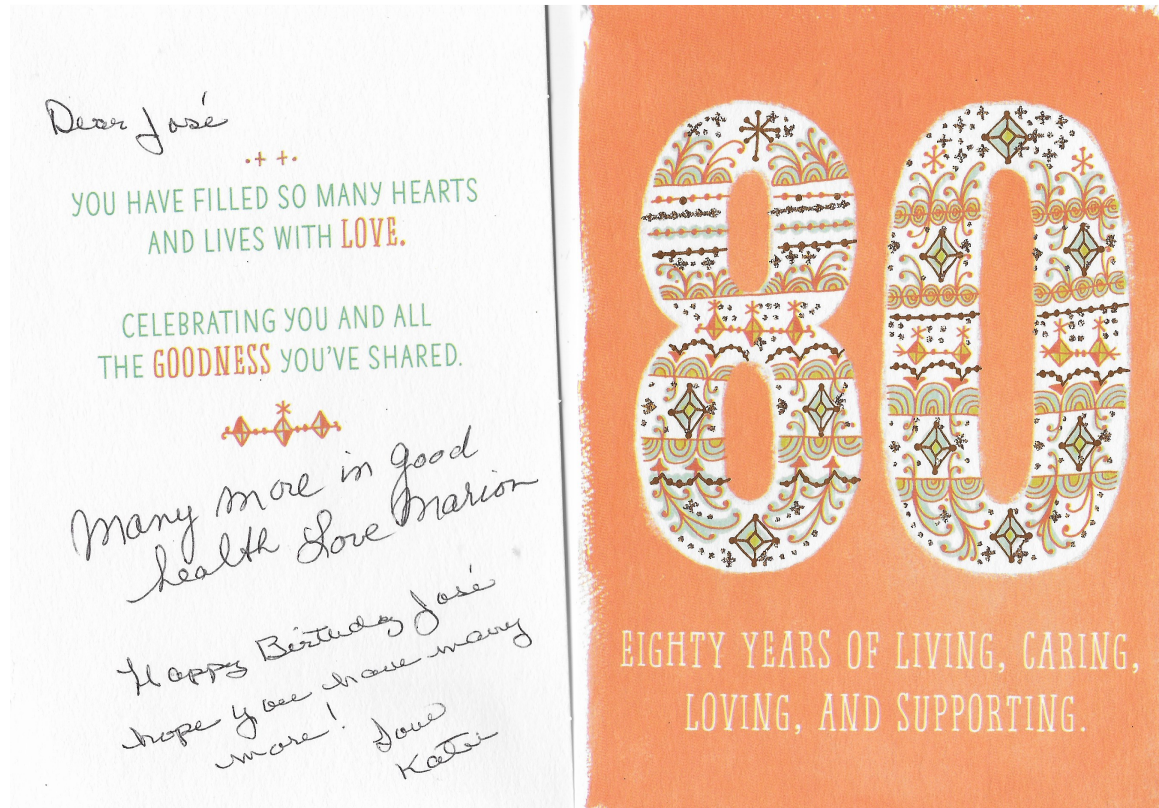 Dear José
YOU HAVE FILLED SO MANY HEARTS
AND LIVES WITH LOVE.
CELEBRATING YOU AND ALL
THE GOODNESS YOU'VE SHARED.
Many more in good
health Love Marion
Happy Birthday José
hope you have many
more! Love
Katie
80
EIGHTY YEARS OF LIVING, CARING,
LOVING, AND SUPPORTING.